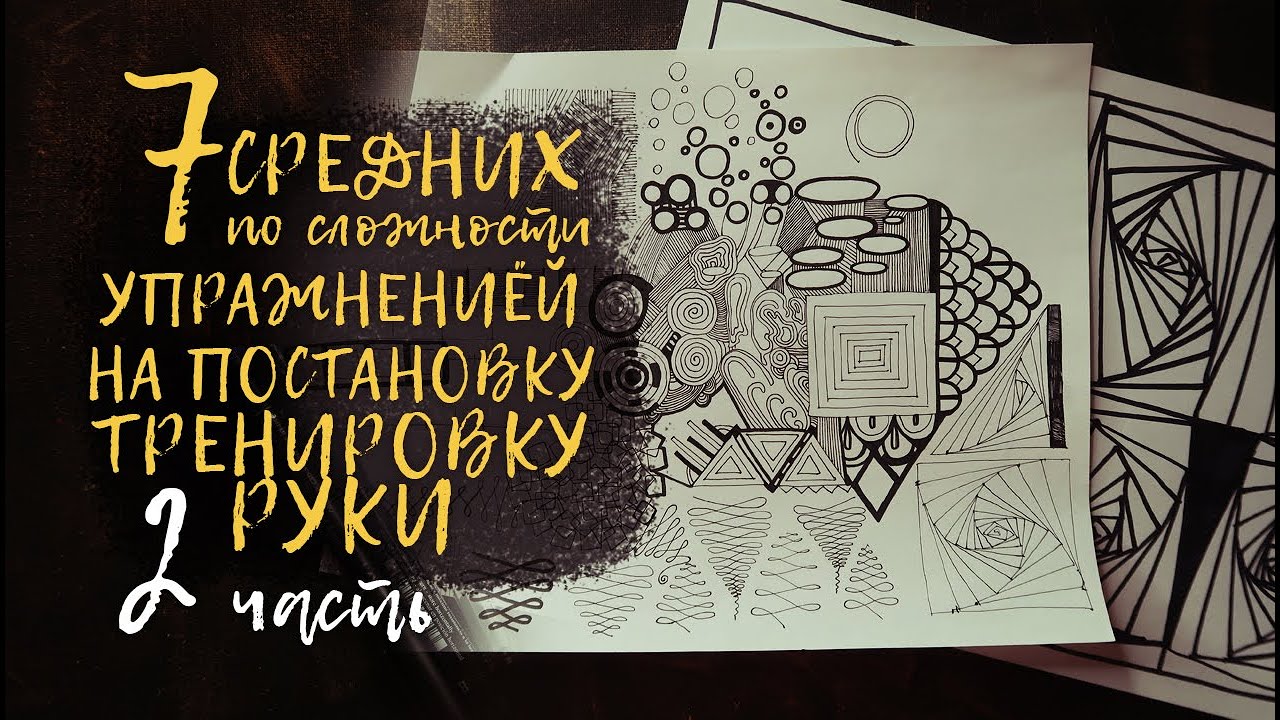 7 СРЕДНИХ
по сложности
УПРАЖНЕНИЁЙ
НА ПОСТАНОВКУ
ТРЕНИРОВКУ
РУКИ
2 часть